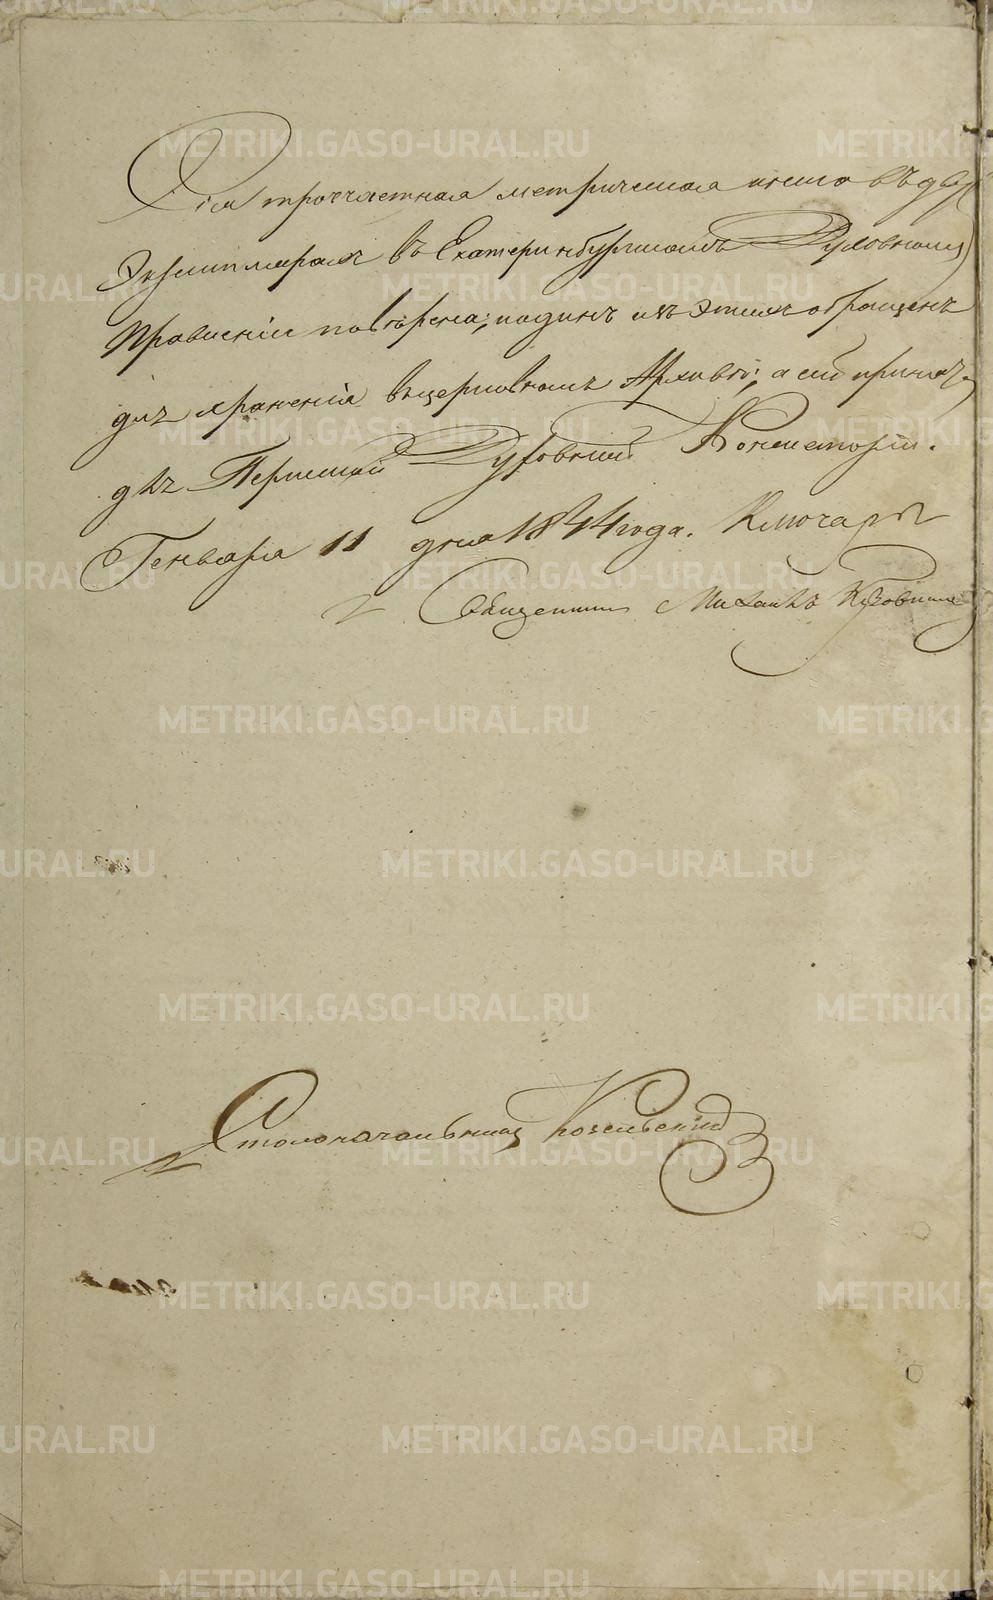 Сія троечастная метрическая книга въ двухъ
Экземплярахъ въ Екатеринбургскомъ Духовномъ
Правленіи повѣрена; и одинъ изъ этихъ обращенъ
для храненія въ церковномъ Архивѣ; а сей
дѣ Пермской Духовной Консисторіи.
Генваря 11 дня 1844 года. Ключарь
Священникъ Михаилъ
Столоначальникъ
METRIKI.GASO-URAL.RU